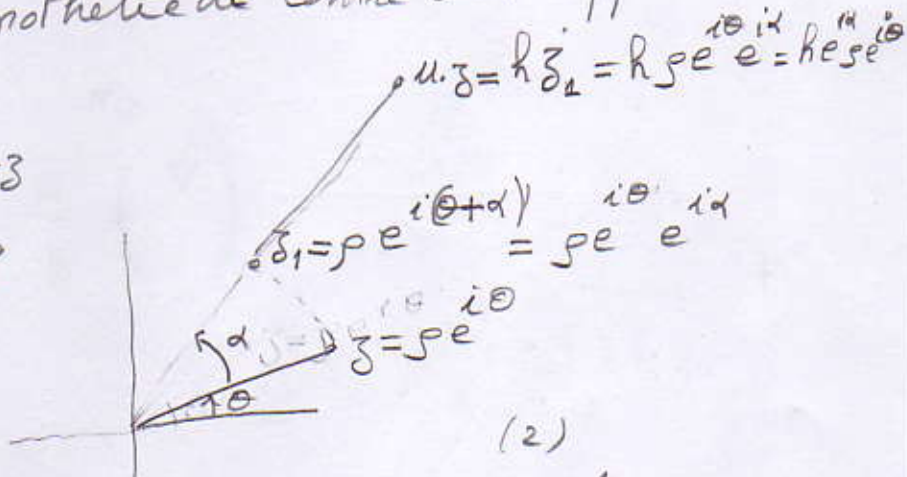 de
u.z = hz₁ = hρe^{iθ} e^{iα} = he^{iα}ρe^{iθ}
z
z₁ = ρe^{i(θ+α)} = ρe^{iθ} e^{iα}
α z = ρe^{iθ}
θ
(2)